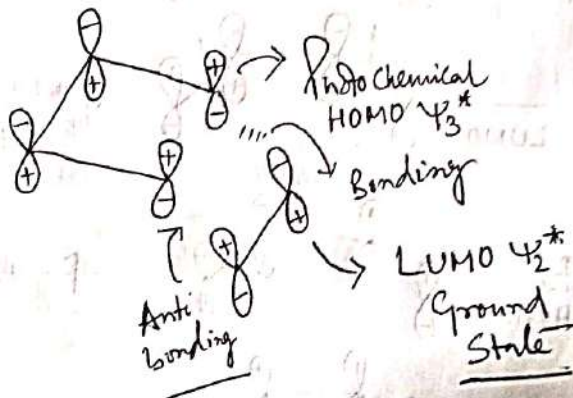 Photochemical
HOMO Ψ₃*
Bonding
LUMO Ψ₂*
Ground
State
Anti
bonding
− + + −
− + + −
− + + −